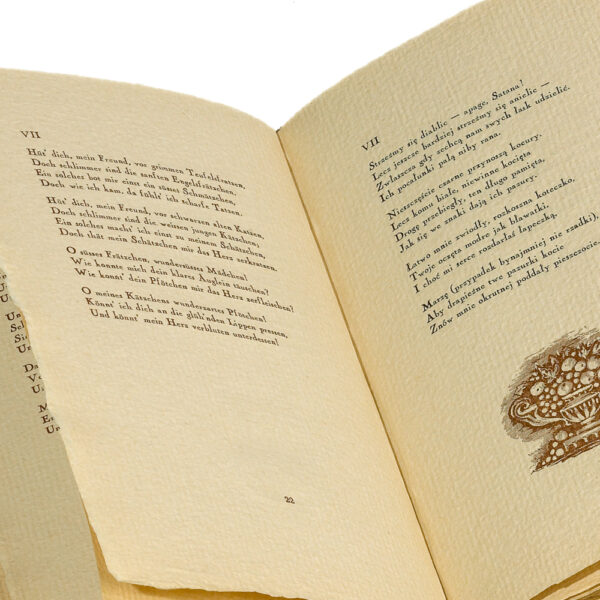 Un
Sch
Sie
Un
Da
Vo
Un
M
Er
Un
VII
Hüt' dich, mein Freund, vor grimmen Teufelsfratzen,
Doch schlimmer sind die sanften Engelsfrätzchen,
Ein solches bot mir einst ein süsses Schmätzchen,
Doch wie ich kam, da fühlt' ich scharfe Tatzen.
Hüt' dich, mein Freund, vor schwarzen alten Katzen,
Doch schlimmer sind die weissen jungen Kätzchen;
Ein solches macht' ich einst zu meinem Schätzchen,
Doch thät mein Schätzchen mir das Herz zerkratzen.
O süsses Frätzchen, wundersüsses Mädchen!
Wie konnte mich dein klares Äuglein täuschen?
Wie konnt' dein Pfötchen mir das Herz zerfleischen?
O meines Kätzchens wunderzartes Pfötchen!
Könnt' ich dich an die glüh'nden Lippen pressen,
Und könnt' mein Herz verbluten unterdessen!
22
VII
Strzeżmy się diablic — apage, Satana!
Lecz jeszcze bardziej strzeżmy się anielic —
Zwłaszcza gdy zechcą nam swych łask udzielić.
Ich pocałunki palą niby rana.
Nieszczęście czarne przynoszą kocury.
Lecz komu białe, niewinne kocięta
Drogę przebiegły, ten długo pamięta,
Jak się we znaki dają ich pazury.
Łatwo mnie zwiodły, rozkoszna koteczko,
Twoje oczęta modre jak bławatki.
I choć mi serce rozdarłaś łapeczką,
Marzę (przypadek bynajmniej nie rzadki),
Aby drapieżne twe pazurki kocie
Znów mnie okrutnej poddały pieszczocie.